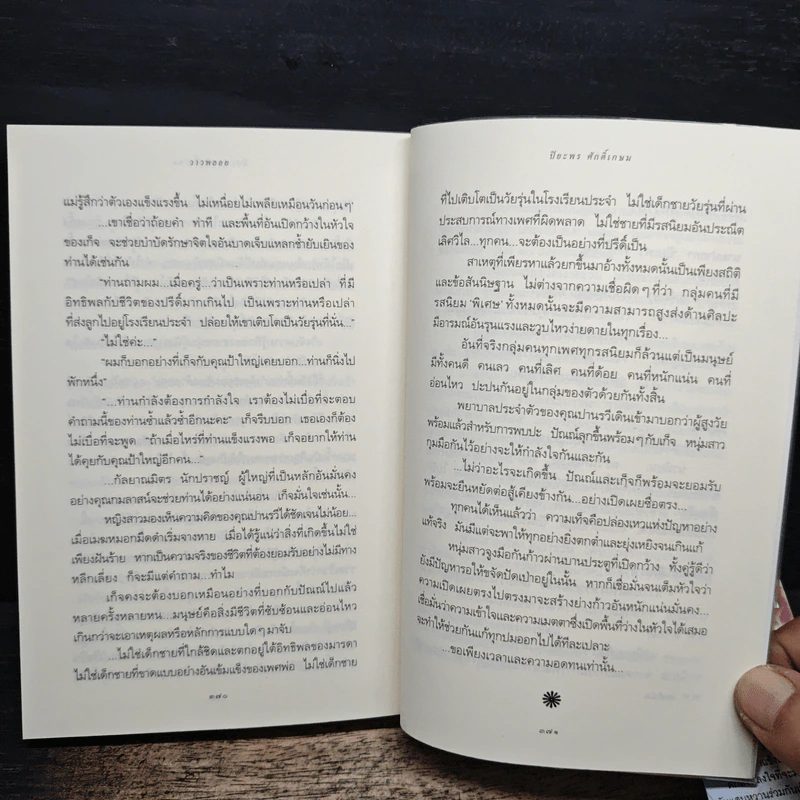 วาวพลอย
แม่รู้สึกว่าตัวเองแข็งแรงขึ้น ไม่เหนื่อยไม่เพลียเหมือนวันก่อนๆ'
...เขาเชื่อว่าถ้อยคำ ท่าที และพื้นที่อันเปิดกว้างในหัวใจ
ของเก็จ จะช่วยบำบัดรักษาจิตใจอันบาดเจ็บแหลกช้ำยับเยินของ
ท่านได้เช่นกัน
“ท่านถามผม...เมื่อครู่...ว่าเป็นเพราะท่านหรือเปล่า ที่มี
อิทธิพลกับชีวิตของปรีดิ์มากเกินไป เป็นเพราะท่านหรือเปล่า
ที่ส่งลูกไปอยู่โรงเรียนประจำ ปล่อยให้เขาเติบโตเป็นวัยรุ่นที่นั่น...”
“ไม่ใช่ค่ะ...”
“ผมก็บอกอย่างที่เก็จกับคุณป้าใหญ่เคยบอก...ท่านก็นิ่งไป
พักหนึ่ง”
“...ท่านกำลังต้องการกำลังใจ เราต้องไม่เบื่อที่จะตอบ
คำถามนี้ของท่านซ้ำแล้วซ้ำอีกนะคะ” เก็จรีบบอก เธอเองก็ต้อง
ไม่เบื่อที่จะพูด “ถ้าเมื่อไหร่ที่ท่านแข็งแรงพอ เก็จอยากให้ท่าน
ได้คุยกับคุณป้าใหญ่อีกคน...”
...กัลยาณมิตร นักปราชญ์ ผู้ใหญ่ที่เป็นหลักอันมั่นคง
อย่างคุณกมลาสน์จะช่วยท่านได้อย่างแน่นอน เก็จมั่นใจเช่นนั้น...
หญิงสาวมองเห็นความคิดของคุณปานรวีได้ชัดเจนไม่น้อย...
เมื่อเมฆหมอกมืดดำเริ่มจางหาย เมื่อได้รู้แน่ว่าสิ่งที่เกิดขึ้นไม่ใช่
เพียงฝันร้าย หากเป็นความจริงของชีวิตที่ต้องยอมรับอย่างไม่มีทาง
หลีกเลี่ยง ก็จะมีแต่คำถาม...ทำไม
เก็จคงจะต้องบอกเหมือนอย่างที่บอกกับปัณณ์ไปแล้ว
หลายครั้งหลายหน...มนุษย์คือสิ่งมีชีวิตที่ซับซ้อนและอ่อนไหว
เกินกว่าจะเอาเหตุผลหรือหลักการแบบใดๆ มาจับ
...ไม่ใช่เด็กชายที่ใกล้ชิดและตกอยู่ใต้อิทธิพลของมารดา
ไม่ใช่เด็กชายที่ขาดแบบอย่างอันเข้มแข็งของเพศพ่อ ไม่ใช่เด็กชาย
๓๗๐
ปิยะพร ศักดิ์เกษม
ที่ไปเติบโตเป็นวัยรุ่นในโรงเรียนประจำ ไม่ใช่เด็กชายวัยรุ่นที่ผ่าน
ประสบการณ์ทางเพศที่ผิดพลาด ไม่ใช่ชายที่มีรสนิยมอันประณีต
เลิศวิไล...ทุกคน...จะต้องเป็นอย่างที่ปรีดิ์เป็น
สาเหตุที่เพียรหาแล้วยกขึ้นมาอ้างทั้งหมดนั้นเป็นเพียงสถิติ
และข้อสันนิษฐาน ไม่ต่างจากความเชื่อผิดๆ ที่ว่า กลุ่มคนที่มี
รสนิยม 'พิเศษ' ทั้งหมดนั้นจะมีความสามารถสูงส่งด้านศิลปะ
มีอารมณ์อันรุนแรงและวูบไหวง่ายดายในทุกเรื่อง...
อันที่จริงกลุ่มคนทุกเพศทุกรสนิยมก็ล้วนแต่เป็นมนุษย์
มีทั้งคนดี คนเลว คนที่เลิศ คนที่ด้อย คนที่หนักแน่น คนที่
อ่อนไหว ปะปนกันอยู่ในกลุ่มของตัวด้วยกันทั้งสิ้น
พยาบาลประจำตัวของคุณปานรวีเดินเข้ามาบอกว่าผู้สูงวัย
พร้อมแล้วสำหรับการพบปะ ปัณณ์ลุกขึ้นพร้อมๆ กับเก็จ หนุ่มสาว
กุมมือกันไว้อย่างจะให้กำลังใจกันและกัน
...ไม่ว่าอะไรจะเกิดขึ้น ปัณณ์และเก็จก็พร้อมจะยอมรับ
พร้อมจะยืนหยัดต่อสู้เคียงข้างกัน...อย่างเปิดเผยซื่อตรง...
ทุกคนได้เห็นแล้วว่า ความเท็จคือปล่องเหวแห่งปัญหาอย่าง
แท้จริง มันมีแต่จะพาให้ทุกอย่างยิ่งตกต่ำและยุ่งเหยิงจนเกินแก้
หนุ่มสาวจูงมือกันก้าวผ่านบานประตูที่เปิดกว้าง ทั้งคู่รู้ดีว่า
ยังมีปัญหารอให้ขจัดปัดเป่าอยู่ในนั้น หากก็เชื่อมั่นจนเต็มหัวใจว่า
ความเปิดเผยตรงไปตรงมาจะสร้างย่างก้าวอันหนักแน่นมั่นคง...
เชื่อมั่นว่าความเข้าใจและความเมตตาซึ่งเปิดพื้นที่ว่างในหัวใจได้เสมอ
จะทำให้ช่วยกันแก้ทุกปมออกไปได้ทีละเปลาะ
...ขอเพียงเวลาและความอดทนเท่านั้น...
๓๗๑